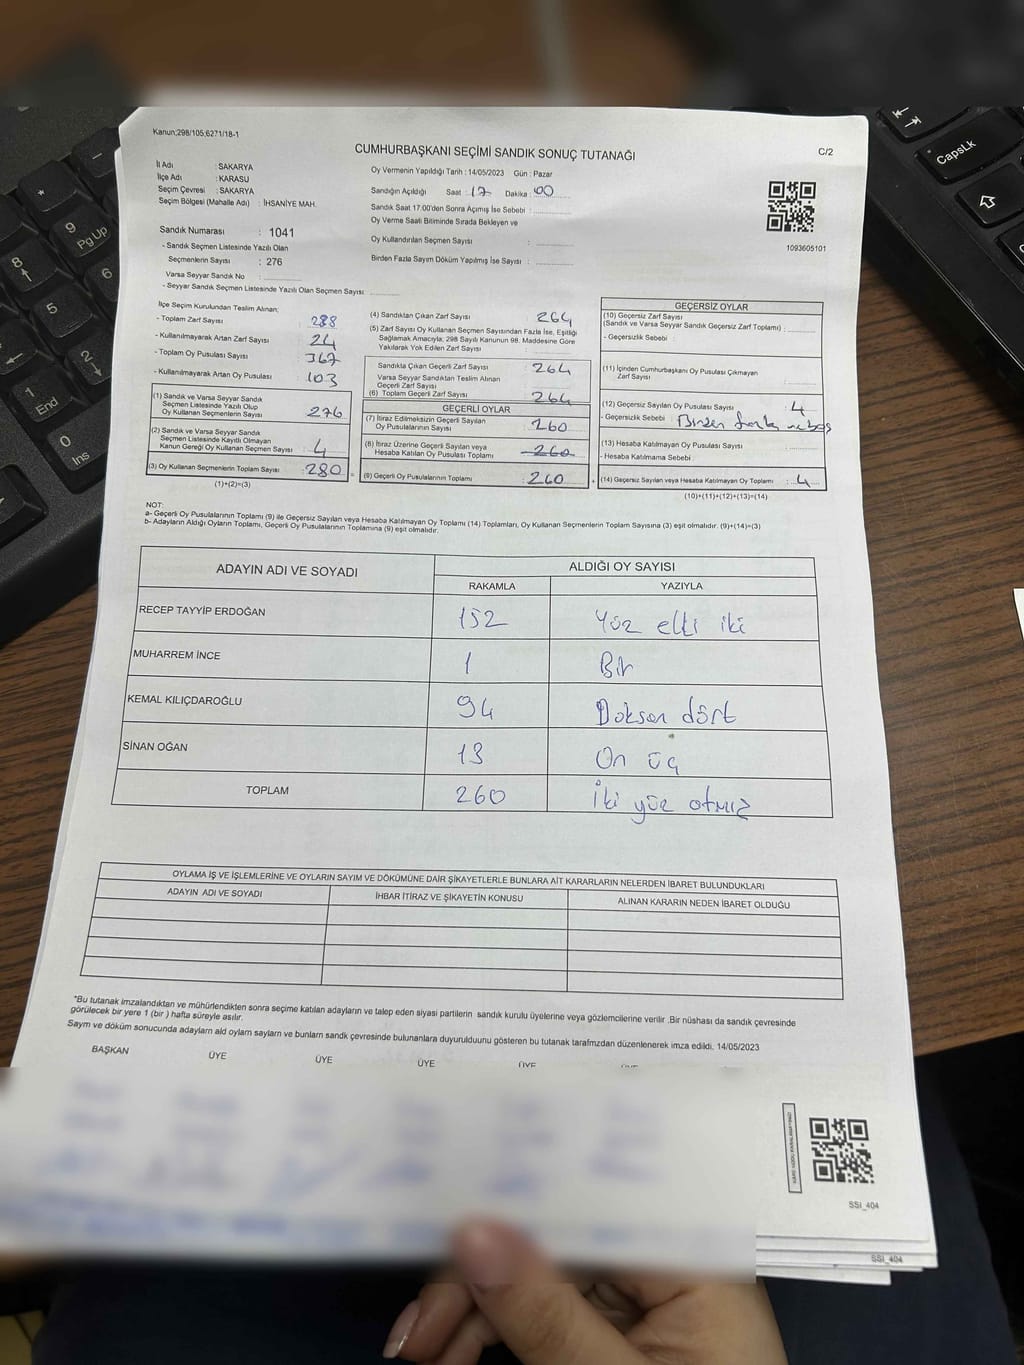 Kanun;298/105,6271/18-1
CUMHURBAŞKANI SEÇİMİ SANDIK SONUÇ TUTANAĞI
C/2
İl Adı : SAKARYA
İlçe Adı : KARASU
Seçim Çevresi : SAKARYA
Seçim Bölgesi (Mahalle Adı) : İHSANİYE MAH.
Sandık Numarası : 1041
- Sandık Seçmen Listesinde Yazılı Olan
Seçmenlerin Sayısı : 276
Varsa Seyyar Sandık No :
- Seyyar Sandık Seçmen Listesinde Yazılı Olan Seçmen Sayısı :
Oy Vermenin Yapıldığı Tarih : 14/05/2023 Gün : Pazar
Sandığın Açıldığı Saat : 17 Dakika : 00
Sandık Saat 17:00'den Sonra Açımış İse Sebebi :
Oy Verme Saati Bitiminde Sırada Bekleyen ve
Oy Kullandırılan Seçmen Sayısı :
Birden Fazla Sayım Döküm Yapılmış İse Sayısı :
1093605101
İlçe Seçim Kurulundan Teslim Alınan:
- Toplam Zarf Sayısı : 288
- Kullanılmayarak Artan Zarf Sayısı : 24
- Toplam Oy Pusulası Sayısı : 367
- Kullanılmayarak Artan Oy Pusulası : 103
(1) Sandık ve Varsa Seyyar Sandık
Seçmen Listesinde Yazılı Olup
Oy Kullanan Seçmenlerin Sayısı : 276
(2) Sandık ve Varsa Seyyar Sandık
Seçmen Listesinde Kayıtlı Olmayan
Kanun Gereği Oy Kullanan Seçmen Sayısı : 4
(3) Oy Kullanan Seçmenlerin Toplam Sayısı : 280
(1)+(2)=(3)
(4) Sandıktan Çıkan Zarf Sayısı : 264
(5) Zarf Sayısı Oy Kullanan Seçmen Sayısından Fazla İse, Eşitliği
Sağlamak Amacıyla; 298 Sayılı Kanunun 98. Maddesine Göre
Yakılarak Yok Edilen Zarf Sayısı :
Sandıkta Çıkan Geçerli Zarf Sayısı : 264
Varsa Seyyar Sandıktan Teslim Alınan
Geçerli Zarf Sayısı :
(6) Toplam Geçerli Zarf Sayısı : 264
GEÇERLİ OYLAR
(7) İtiraz Edilmeksizin Geçerli Sayılan
Oy Pusulalarının Sayısı : 260
(8) İtiraz Üzerine Geçerli Sayılan veya
Hesaba Katılan Oy Pusulası Toplamı : 260
(9) Geçerli Oy Pusulalarının Toplamı : 260
GEÇERSİZ OYLAR
(10) Geçersiz Zarf Sayısı
(Sandık ve Varsa Seyyar Sandık Geçersiz Zarf Toplamı) :
- Geçersizlik Sebebi :
(11) İçinden Cumhurbaşkanı Oy Pusulası Çıkmayan
Zarf Sayısı :
(12) Geçersiz Sayılan Oy Pusulası Sayısı : 4
- Geçersizlik Sebebi : Birden fazla
(13) Hesaba Katılmayan Oy Pusulası Sayısı :
- Hesaba Katılmama Sebebi :
(14) Geçersiz Sayılan veya Hesaba Katılmayan Oy Toplamı : 4
(10)+(11)+(12)+(13)=(14)
NOT:
a- Geçerli Oy Pusulalarının Toplamı (9) ile Geçersiz Sayılan veya Hesaba Katılmayan Oy Toplamı (14) Toplamları, Oy Kullanan Seçmenlerin Toplam Sayısına (3) eşit olmalıdır. (9)+(14)=(3)
b- Adayların Aldığı Oyların Toplamı, Geçerli Oy Pusulalarının Toplamına (9) eşit olmalıdır.
ADAYIN ADI VE SOYADI
ALDIĞI OY SAYISI
RAKAMLA YAZIYLA
RECEP TAYYİP ERDOĞAN 152 Yüz elli iki
MUHARREM İNCE 1 Bir
KEMAL KILIÇDAROĞLU 94 Doksan dört
SİNAN OĞAN 13 On üç
TOPLAM 260 İki yüz otmız
OYLAMA İŞ VE İŞLEMLERİNE VE OYLARIN SAYIM VE DÖKÜMÜNE DAİR ŞİKAYETLERLE BUNLARA AİT KARARLARIN NELERDEN İBARET BULUNDUKLARI
ADAYIN ADI VE SOYADI İHBAR İTİRAZ VE ŞİKAYETİN KONUSU ALINAN KARARIN NEDEN İBARET OLDUĞU
*Bu tutanak imzalandıktan ve mühürlendikten sonra seçime katılan adayların ve talep eden siyasi partilerin sandık kurulu üyelerine veya gözlemcilerine verilir .Bir nüshası da sandık çevresinde
görülecek bir yere 1 (bir ) hafta süreyle asılır.
Saym ve döküm sonucunda adayların ald oyların sayların ve bunların sandk çevresinde bulunanlara duyurulduunu gösteren bu tutanak tarafmzdan düzenlenerek imza edildi. 14/05/2023
BAŞKAN ÜYE ÜYE ÜYE ÜYE ÜYE
SSI_404
SSI_404
*
9
PgUp
8
6
5
2
1
End
0
Ins
CapsLk